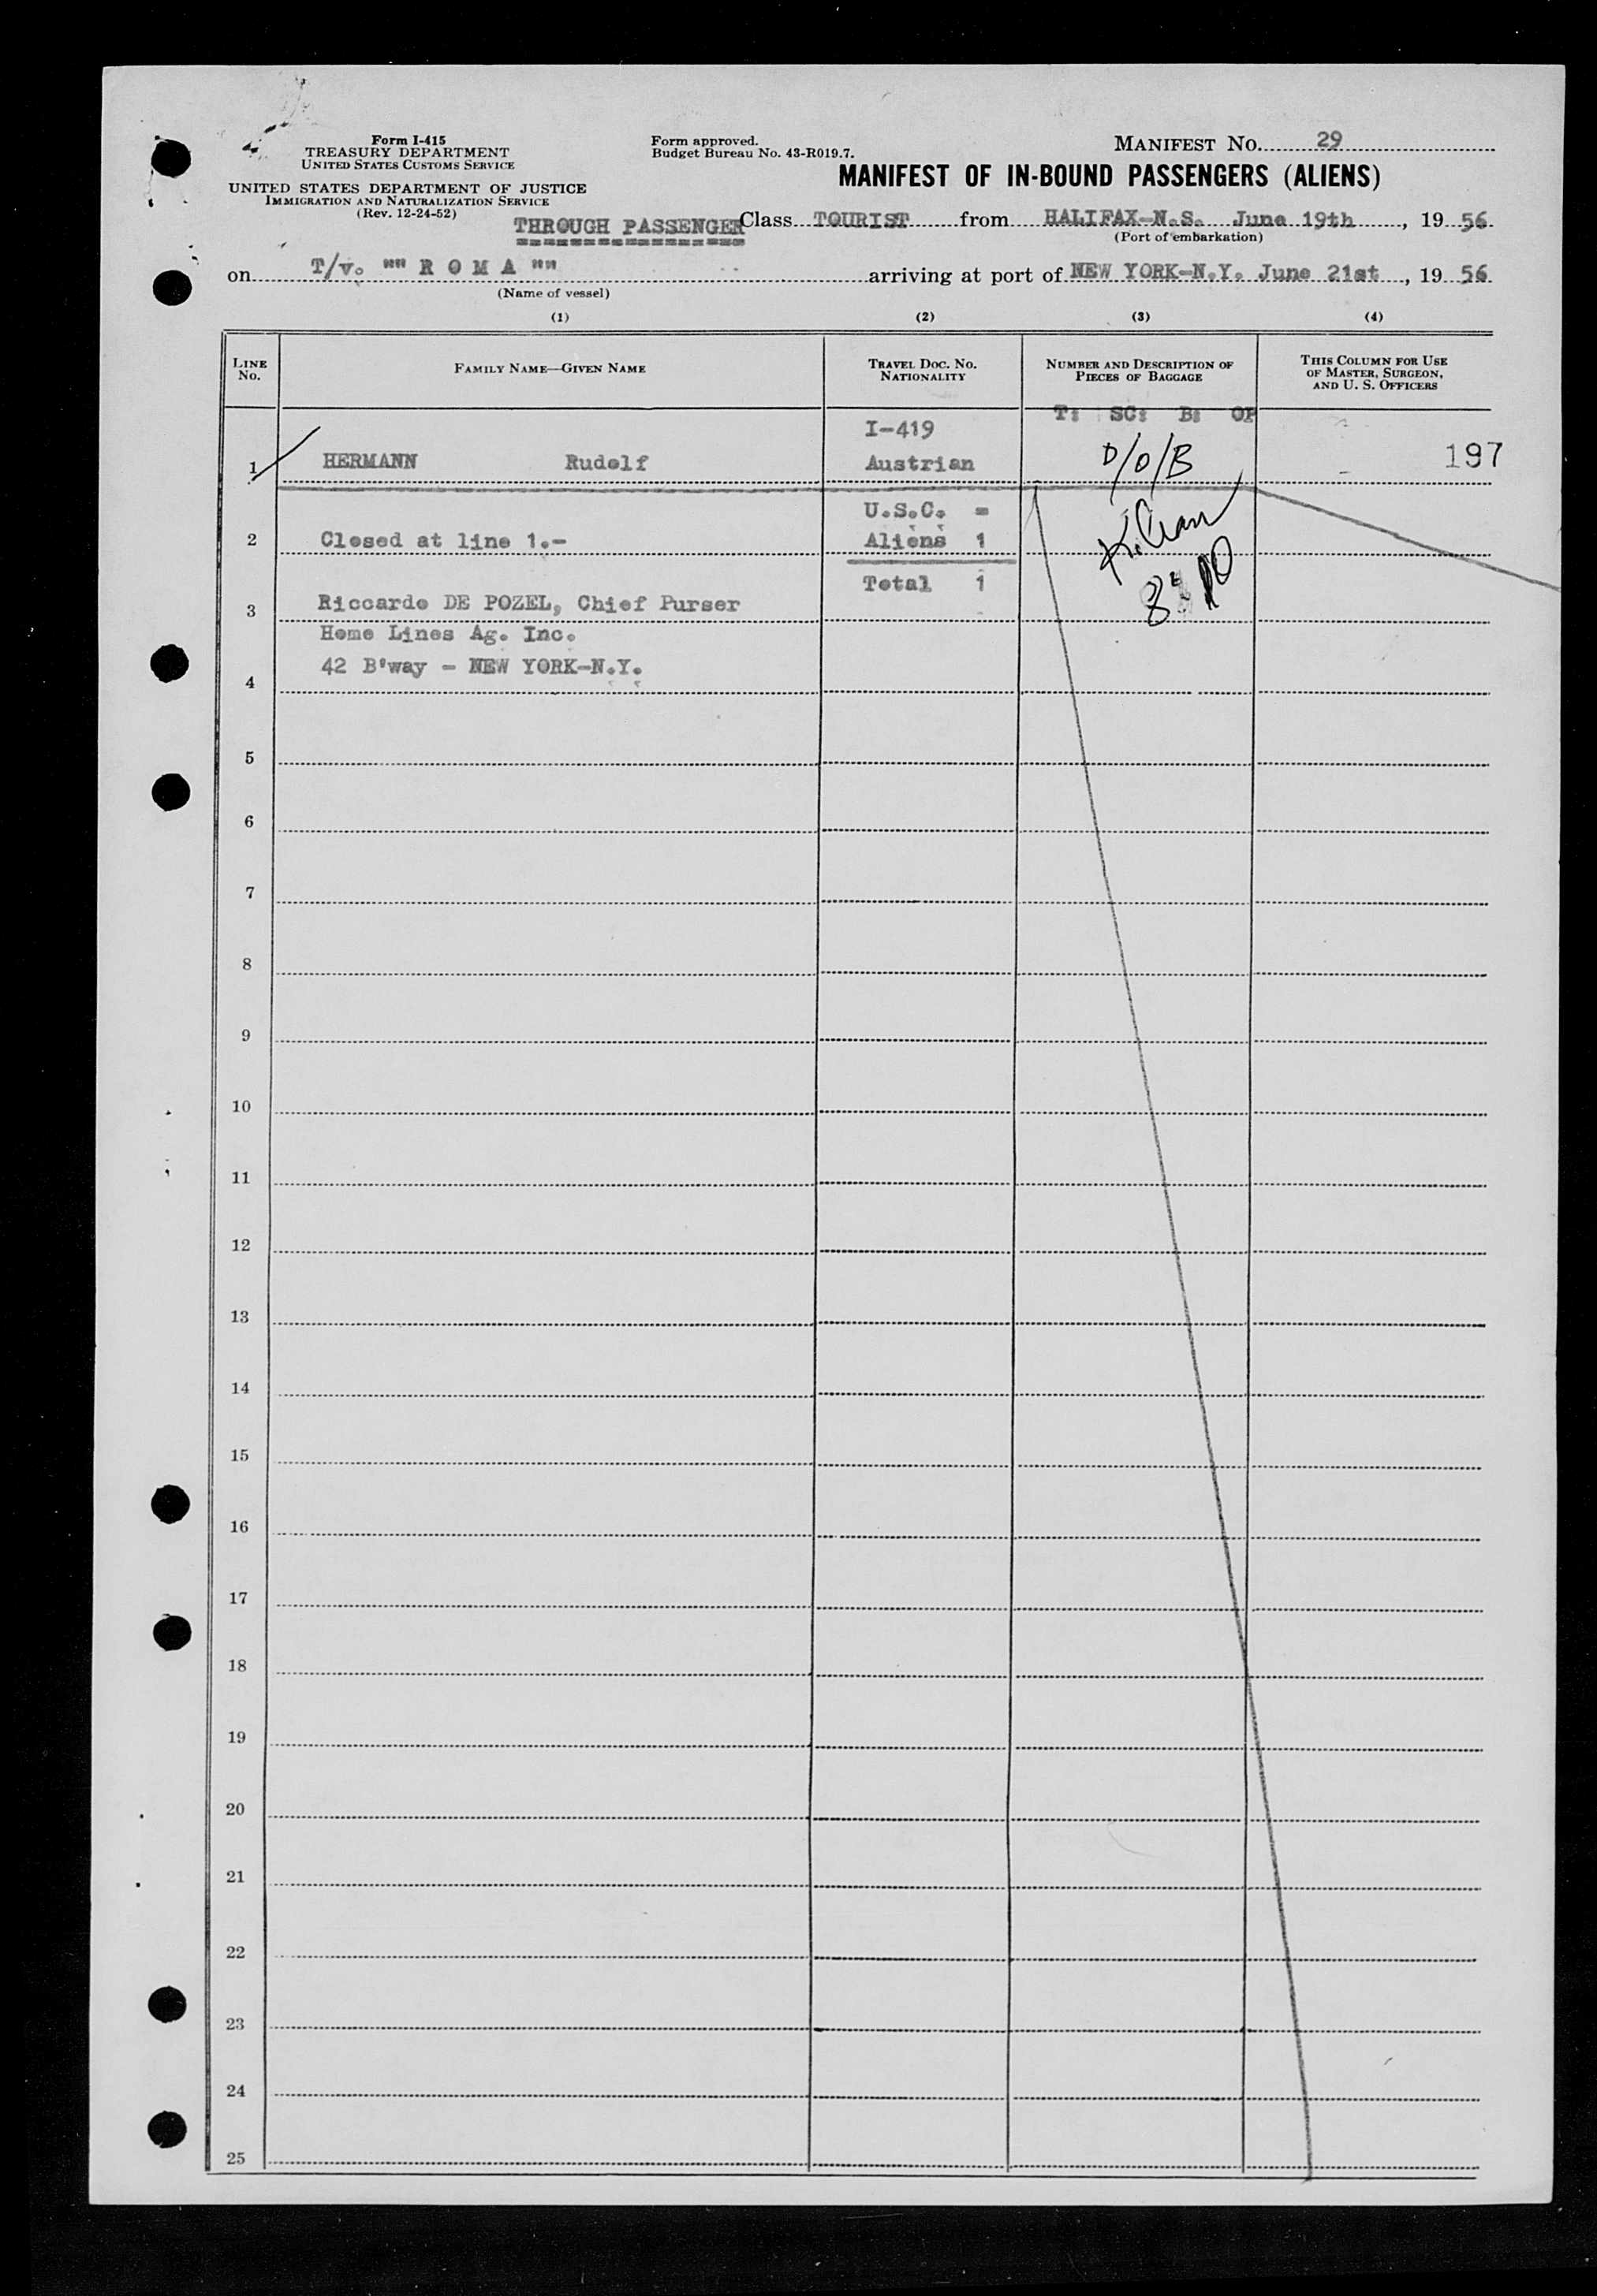 Form I-415
TREASURY DEPARTMENT
UNITED STATES CUSTOMS SERVICE
UNITED STATES DEPARTMENT OF JUSTICE
IMMIGRATION AND NATURALIZATION SERVICE
(Rev. 12-24-52)
Form approved.
Budget Bureau No. 43-R019.7.
MANIFEST No. 29
MANIFEST OF IN-BOUND PASSENGERS (ALIENS)
THROUGH PASSENGER Class TOURIST from HALIFAX-N.S. June 19th, 19 56
(Port of embarkation)
on T/v. "" R O M A "" arriving at port of NEW YORK-N.Y. June 21st, 19 56
(Name of vessel)
(1) (2) (3) (4)
LINE No. FAMILY NAME—GIVEN NAME TRAVEL DOC. No. NATIONALITY NUMBER AND DESCRIPTION OF PIECES OF BAGGAGE THIS COLUMN FOR USE OF MASTER, SURGEON, AND U. S. OFFICERS
T: SC: B: OP
I-419
1 HERMANN Rudolf Austrian D/O/B 197
U.S.C. =
2 Closed at line 1.- Aliens 1
Total 1
3 Riccardo DE POZEL, Chief Purser
Home Lines Ag. Inc.
42 B'way - NEW YORK-N.Y.
4
5
6
7
8
9
10
11
12
13
14
15
16
17
18
19
20
21
22
23
24
25